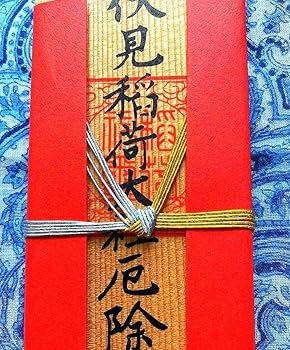 伏見稲荷大社厄除